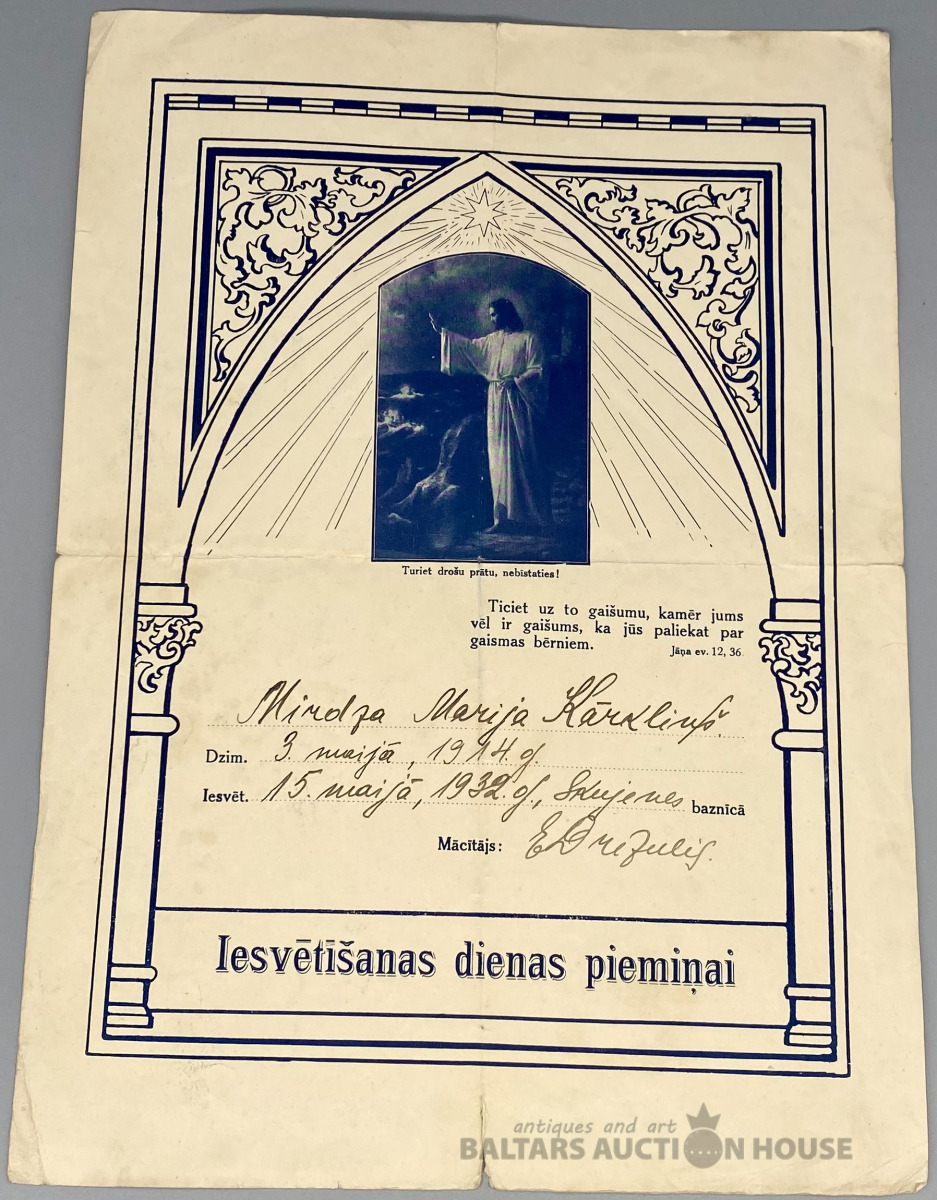 Turiet drošu prātu, nebīstaties!
Ticiet uz to gaišumu, kamēr jums
vēl ir gaišums, ka jūs paliekat par
gaismas bērniem. Jāņa ev. 12, 36.
Mirdza Marija Kārkliņš.
Dzim. 3. maijā, 1914. g.
Iesvēt. 15. maijā, 1932. g., Skujenes baznīcā
Mācītājs: E Drezulis.
Iesvētīšanas dienas piemiņai
antiques and art
BALTARS AUCTION HOUSE